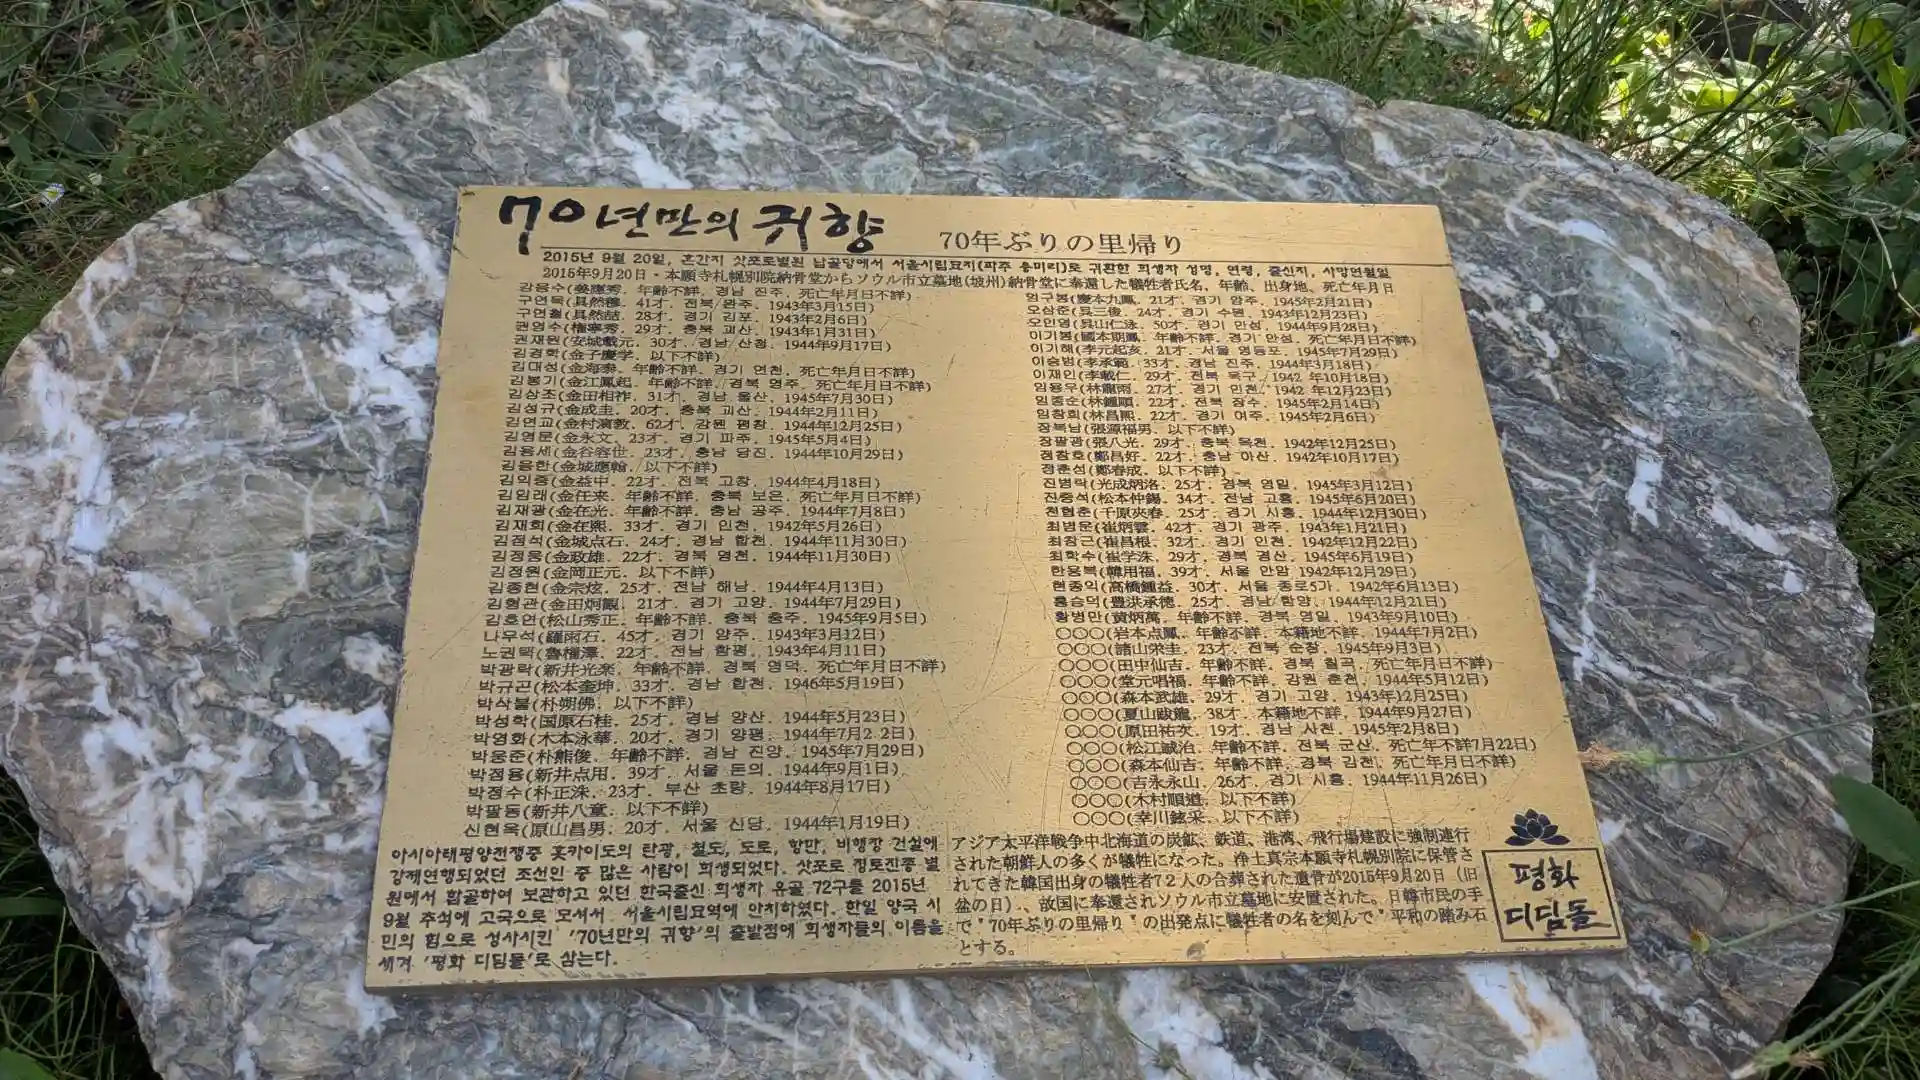 70년만의 귀향
70年ぶりの里帰り
2015년 9월 20일, 혼간지 삿포로별원 납골당에서 서울시립묘지(파주 용미리)로 귀환한 희생자 성명, 연령, 출신지, 사망연월일
2015年9月20日・本願寺札幌別院納骨堂からソウル市立墓地(坡州)納骨堂に奉還した犠牲者氏名、年齢、出身地、死亡年月日
강응수(姜應秀. 年齢不詳. 경남 진주. 死亡年月日不詳)
구연목(具然穆. 41才. 전북 완주. 1943年3月15日)
구연철(具然喆. 28才. 경기 김포. 1943年2月6日)
권영수(権寧秀. 29才. 충북 괴산. 1943年1月31日)
권재원(安城載元. 30才. 경남 산청. 1944年9月17日)
김경학(金子慶学. 以下不詳)
김대성(金海泰. 年齢不詳. 경기 연천. 死亡年月日不詳)
김봉기(金江鳳起. 年齢不詳. 경북 영주. 死亡年月日不詳)
김상조(金田相祚. 31才. 경남 울산. 1945年7月30日)
김성규(金成圭. 20才. 충북 괴산. 1944年2月11日)
김연교(金村演教. 62才. 강원 평창. 1944年12月25日)
김영문(金永文. 23才. 경기 파주. 1945年5月4日)
김용세(金谷容世. 23才. 충남 당진. 1944年10月29日)
김응한(金城應翰. 以下不詳)
김익중(金益中. 22才. 전북 고창. 1944年4月18日)
김임래(金任来. 年齢不詳. 충북 보은. 死亡年月日不詳)
김재광(金在光. 年齢不詳. 충남 공주. 1944年7月8日)
김재희(金在熙. 33才. 경기 인천. 1942年5月26日)
김점석(金城点石. 24才. 경남 합천. 1944年11月30日)
김정웅(金政雄. 22才. 경북 영천. 1944年11月30日)
김정원(金岡正元. 以下不詳)
김종현(金宗炫. 25才. 전남 해남. 1944年4月13日)
김형관(金田炯館. 21才. 경기 고양. 1944年7月29日)
김호언(松山秀正. 年齢不詳. 충북 충주. 1945年9月5日)
나우석(羅雨石. 45才. 경기 양주. 1943年3月12日)
노권택(魯権澤. 22才. 전남 함평. 1943年4月11日)
박광락(新井光楽. 年齢不詳. 경북 영덕. 死亡年月日不詳)
박규곤(松本奎坤. 33才. 경남 합천. 1946年5月19日)
박삭불(朴朔佛. 以下不詳)
박성학(国原石桂. 25才. 경남 양산. 1944年5月23日)
박영화(木本泳華. 20才. 경기 양평. 1944年7月2 2日)
박웅준(朴熊俊. 年齢不詳. 경남 진양. 1945年7月29日)
박점용(新井点用. 39才. 서울 돈의. 1944年9月1日)
박정수(朴正洙. 23才. 부산 초량. 1944年8月17日)
박팔동(新井八童. 以下不詳)
신현욱(原山昌男. 20才. 서울 신당. 1944年1月19日)
엄구봉(慶本九鳳. 21才. 경기 양주. 1945年2月21日)
오삼준(呉三俊. 24才. 경기 수원. 1943年12月23日)
오인영(呉山仁泳. 50才. 경기 안성. 1944年9月28日)
이기봉(國本期鳳. 年齢不詳. 경기 안성. 死亡年月日不詳)
이기해(李元起亥. 21才. 서울 영등포. 1945年7月29日)
이승범(李承範. 33才. 경남 진주. 1944年3月18日)
이재인(李載仁. 29才. 전북 옥구. 1942 年10月18日)
임용우(林龍雨. 27才. 경기 인천. 1942 年12月23日)
임종순(林鍾順. 22才. 전북 장수. 1945年2月14日)
임창희(林昌熙. 22才. 경기 여주. 1945年2月6日)
장복남(張源福男. 以下不詳)
장팔광(張八光. 29才. 충북 옥천. 1942年12月25日)
정창호(鄭昌好. 22才. 충남 아산. 1942年10月17日)
정춘성(鄭春成. 以下不詳)
진병락(光成炳洛. 25才. 경북 영일. 1945年3月12日)
진중석(松本仲錫. 34才. 전남 고흥. 1945年6月20日)
천협춘(千原夾春. 25才. 경기 시흥. 1944年12月30日)
최병운(崔炳雲. 42才. 경기 광주. 1943年1月21日)
최창근(崔昌根. 32才. 경기 인천. 1942年12月22日)
최학수(崔学洙. 29才. 경북 경산. 1945年6月19日)
한용복(韓用福. 39才. 서울 안암. 1942年12月29日)
현종익(高橋鍾益. 30才. 서울 종로5가. 1942年6月13日)
홍승덕(豊洪承徳. 25才. 경남 함양. 1944年12月21日)
황병만(黄炳萬. 年齢不詳. 경북 영일. 1943年9月10日)
○○○(岩本点鳳. 年齢不詳. 本籍地不詳. 1944年7月2日)
○○○(諸山栄圭. 23才. 전북 순창. 1945年9月3日)
○○○(田中仙吉. 年齢不詳. 경북 칠곡. 死亡年月日不詳)
○○○(堂元唱福. 年齢不詳. 강원 춘천. 1944年5月12日)
○○○(森本武雄. 29才. 경기 고양. 1943年12月25日)
○○○(夏山跋龍. 38才. 本籍地不詳. 1944年9月27日)
○○○(原田祐次. 19才. 경남 사천. 1945年2月8日)
○○○(松江誠治. 年齢不詳. 전북 군산. 死亡年不詳7月22日)
○○○(森本仙吉. 年齢不詳. 경북 김천. 死亡年月日不詳)
○○○(吉永永山. 26才. 경기 시흥. 1944年11月26日)
○○○(木村順道. 以下不詳)
○○○(幸川鉉采. 以下不詳)
아시아태평양전쟁중 홋카이도의 탄광, 철도, 도로, 항만, 비행장 건설에
강제연행되었던 조선인 중 많은 사람이 희생되었다. 삿포로 정토진종 별
원에서 합골하여 보관하고 있던 한국출신 희생자 유골 72구를 2015년
9월 추석에 고국으로 모셔서 서울시립묘역에 안치하였다. 한일 양국 시
민의 힘으로 성사시킨 '70년만의 귀향'의 출발점에 희생자들의 이름을
새겨 '평화 디딤돌'로 삼는다.
アジア太平洋戦争中北海道の炭鉱、鉄道、港湾、飛行場建設に強制連行
された朝鮮人の多くが犠牲になった。浄土真宗本願寺札幌別院に保管さ
れてきた韓国出身の犠牲者72人の合葬された遺骨が2015年9月20日（旧
盆の日）、故国に奉還されソウル市立墓地に安置された。日韓市民の手
で"70年ぶりの里帰り"の出発点に犠牲者の名を刻んで"平和の踏み石
とする。
평화
디딤돌